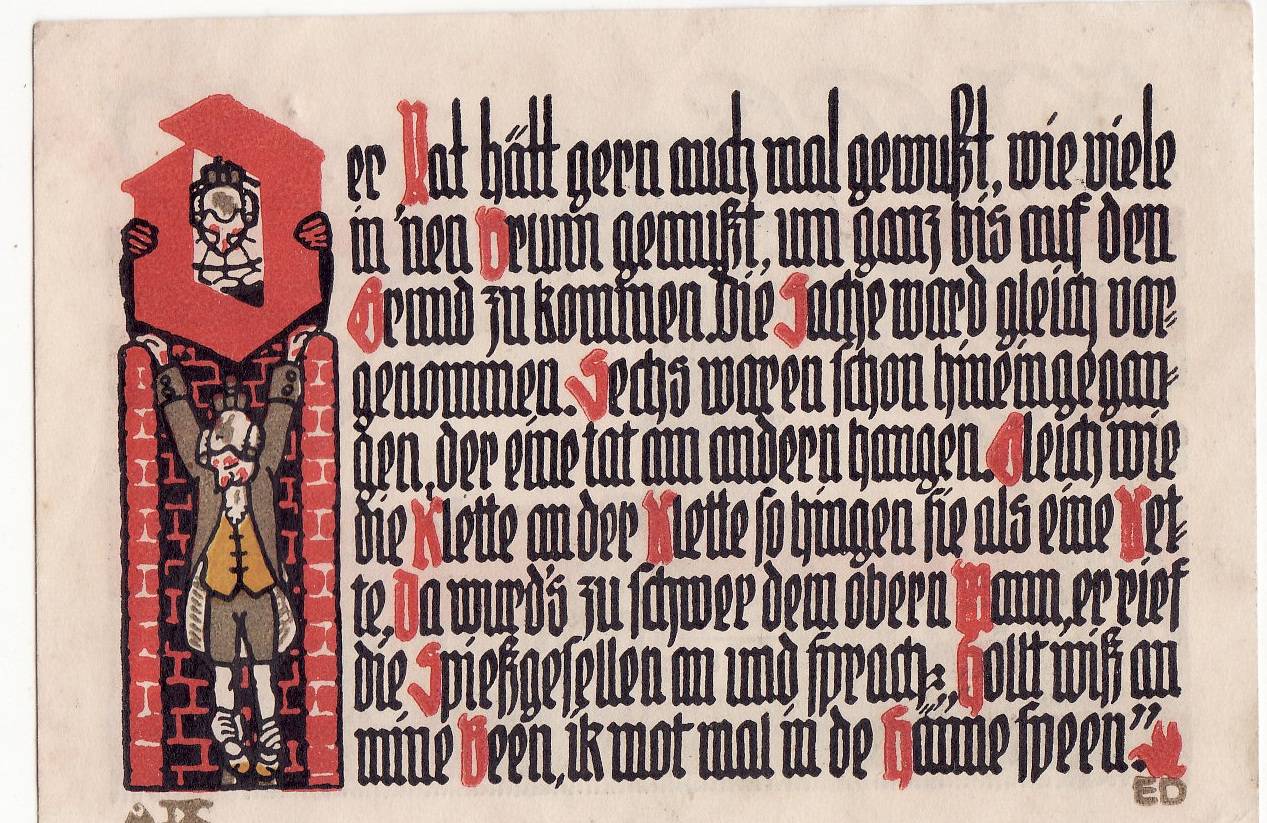 Der Rat hätt gern auch mal gewußt, wie viele
in 'nen Brunn gemußt, um ganz bis auf den
Grund zu kommen. Die Sache ward gleich vor-
genommen. Sechs waren schon hineingegan-
gen, der eine tat am andern hangen. Gleich wie
die Klette an der Klette so hingen sie als eine Ket-
te, Da wurd's zu schwer dem obern Mann, er rief
die Spießgesellen an und sprach: „Hollt wiß an
mine Been, ik mot mal in de Hänne speen”.
ED